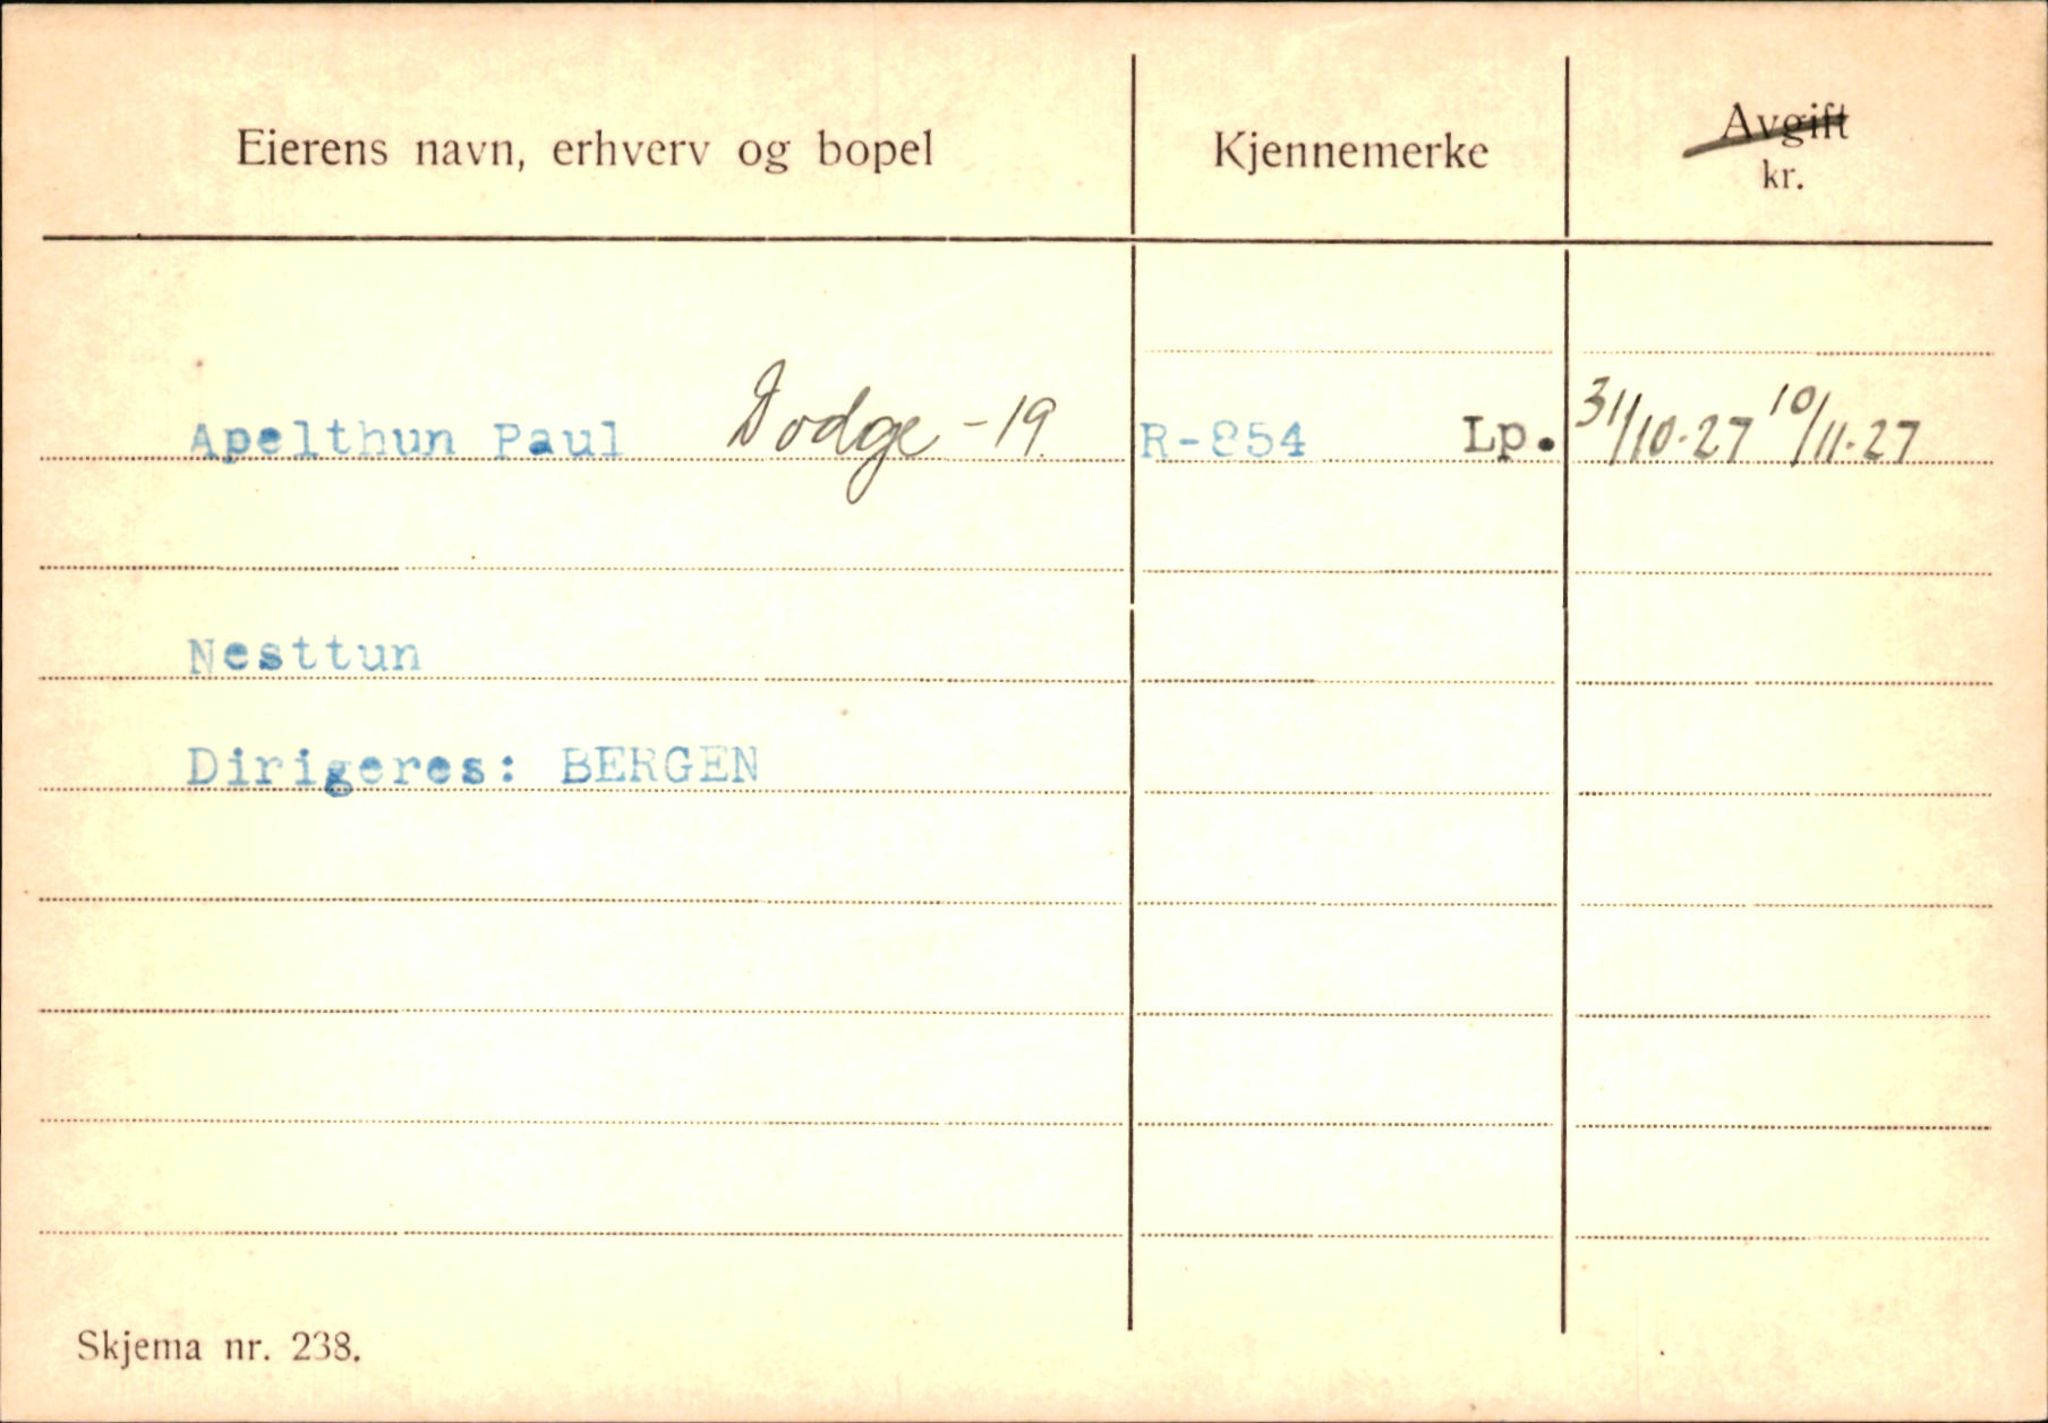 Eierens navn, erhverv og bopel Kjennemerke Avgift
kr.
Apelthun Paul Dodge -19. R-854 Lp. 31/10-27 10/11-27
Nesttun
Dirigeres: BERGEN
Skjema nr. 238.